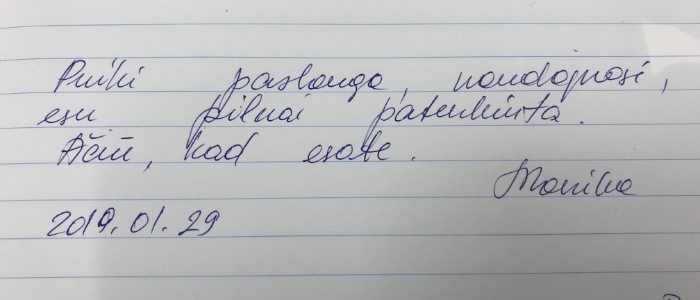 Puiki paslauga, naudojuosi,
esu pilnai patenkinta.
Ačiū, kad esate.
Monika
2019.01.29